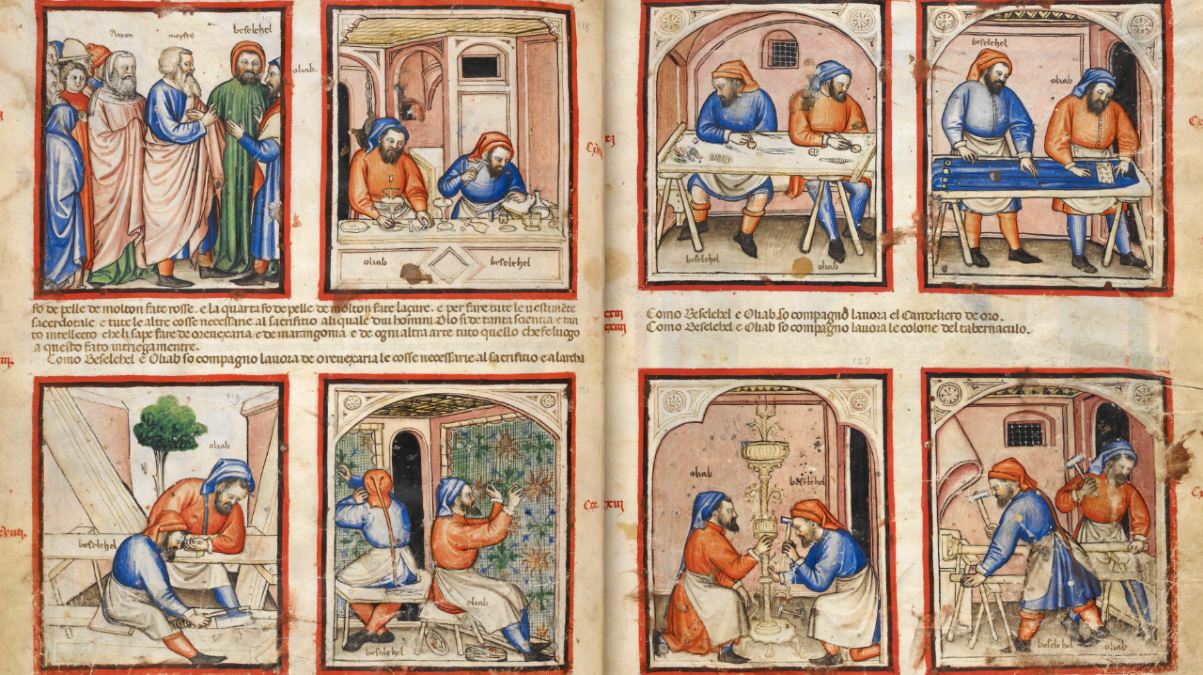 Aaron
moyses
beselehel
oliab.
118
oliab
beselehel
fo de pelle de molton fate rosse. e la quarta fo de pelle de molton fate laçure. e per fare tute le uestimēte
sacerdotale e tute le altre cosse necessarie al sacrifitio ali quale dui homini Dio fe de tanta sciencia e tan
to intellecto che li sape fare de oreuexaria e de marangonia e de ogni altra arte tuto quello che fe luogo
a questo fato intriegamentre.
Como Beselehel e Oliab so compagno laura de oreuexaria le cosse necessarie al sacrifitio e a larcha
119
oliab
beselehel
oliab
beselehel
beselehel
oliab
beselehel
oliab
Como Beselehel e Oliab so compagno laura el Candeliero de oro.
Como Beselehel e Oliab so compagno laura le colone del tabernaculo.
120
oliab
beselehel
beselehel
oliab